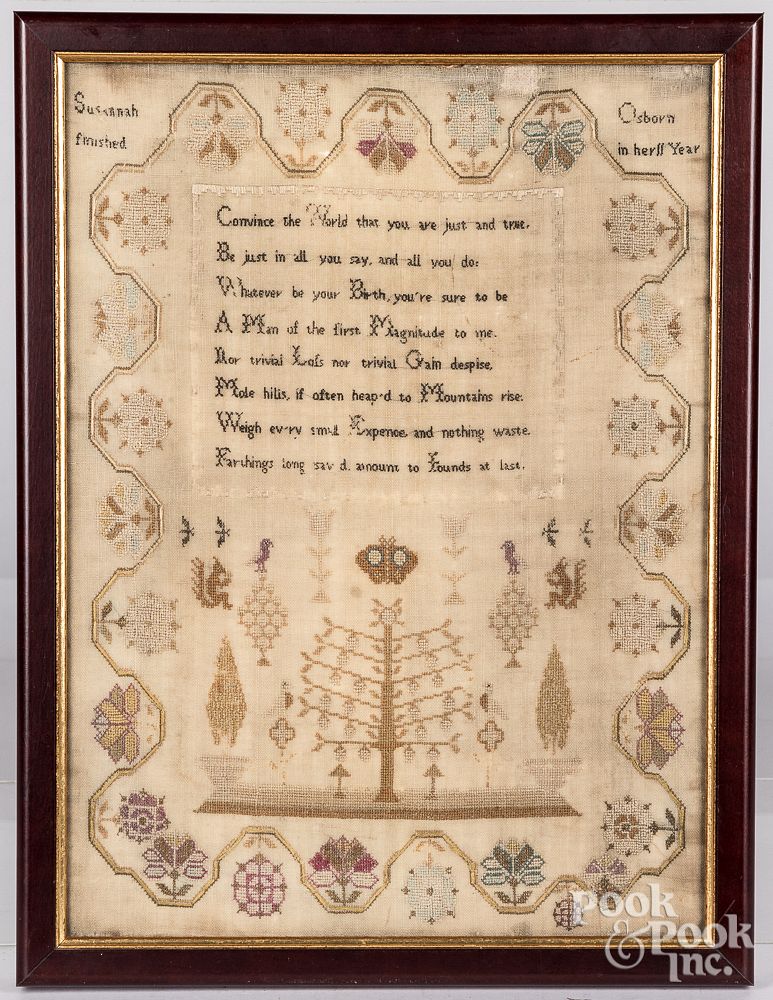 Susannah Osborn
finished in her 11 Year
Convince the World that you are just and true,
Be just in all you say, and all you do:
Whatever be your Birth, you're sure to be
A Man of the first Magnitude to me.
Nor trivial Loſs nor trivial Gain despise,
Mole hills, if often heap'd to Mountains rise:
Weigh ev'ry small Expence and nothing waste,
Farthings long sav'd, amount to Pounds at last.
Pook
& Pook
Inc.